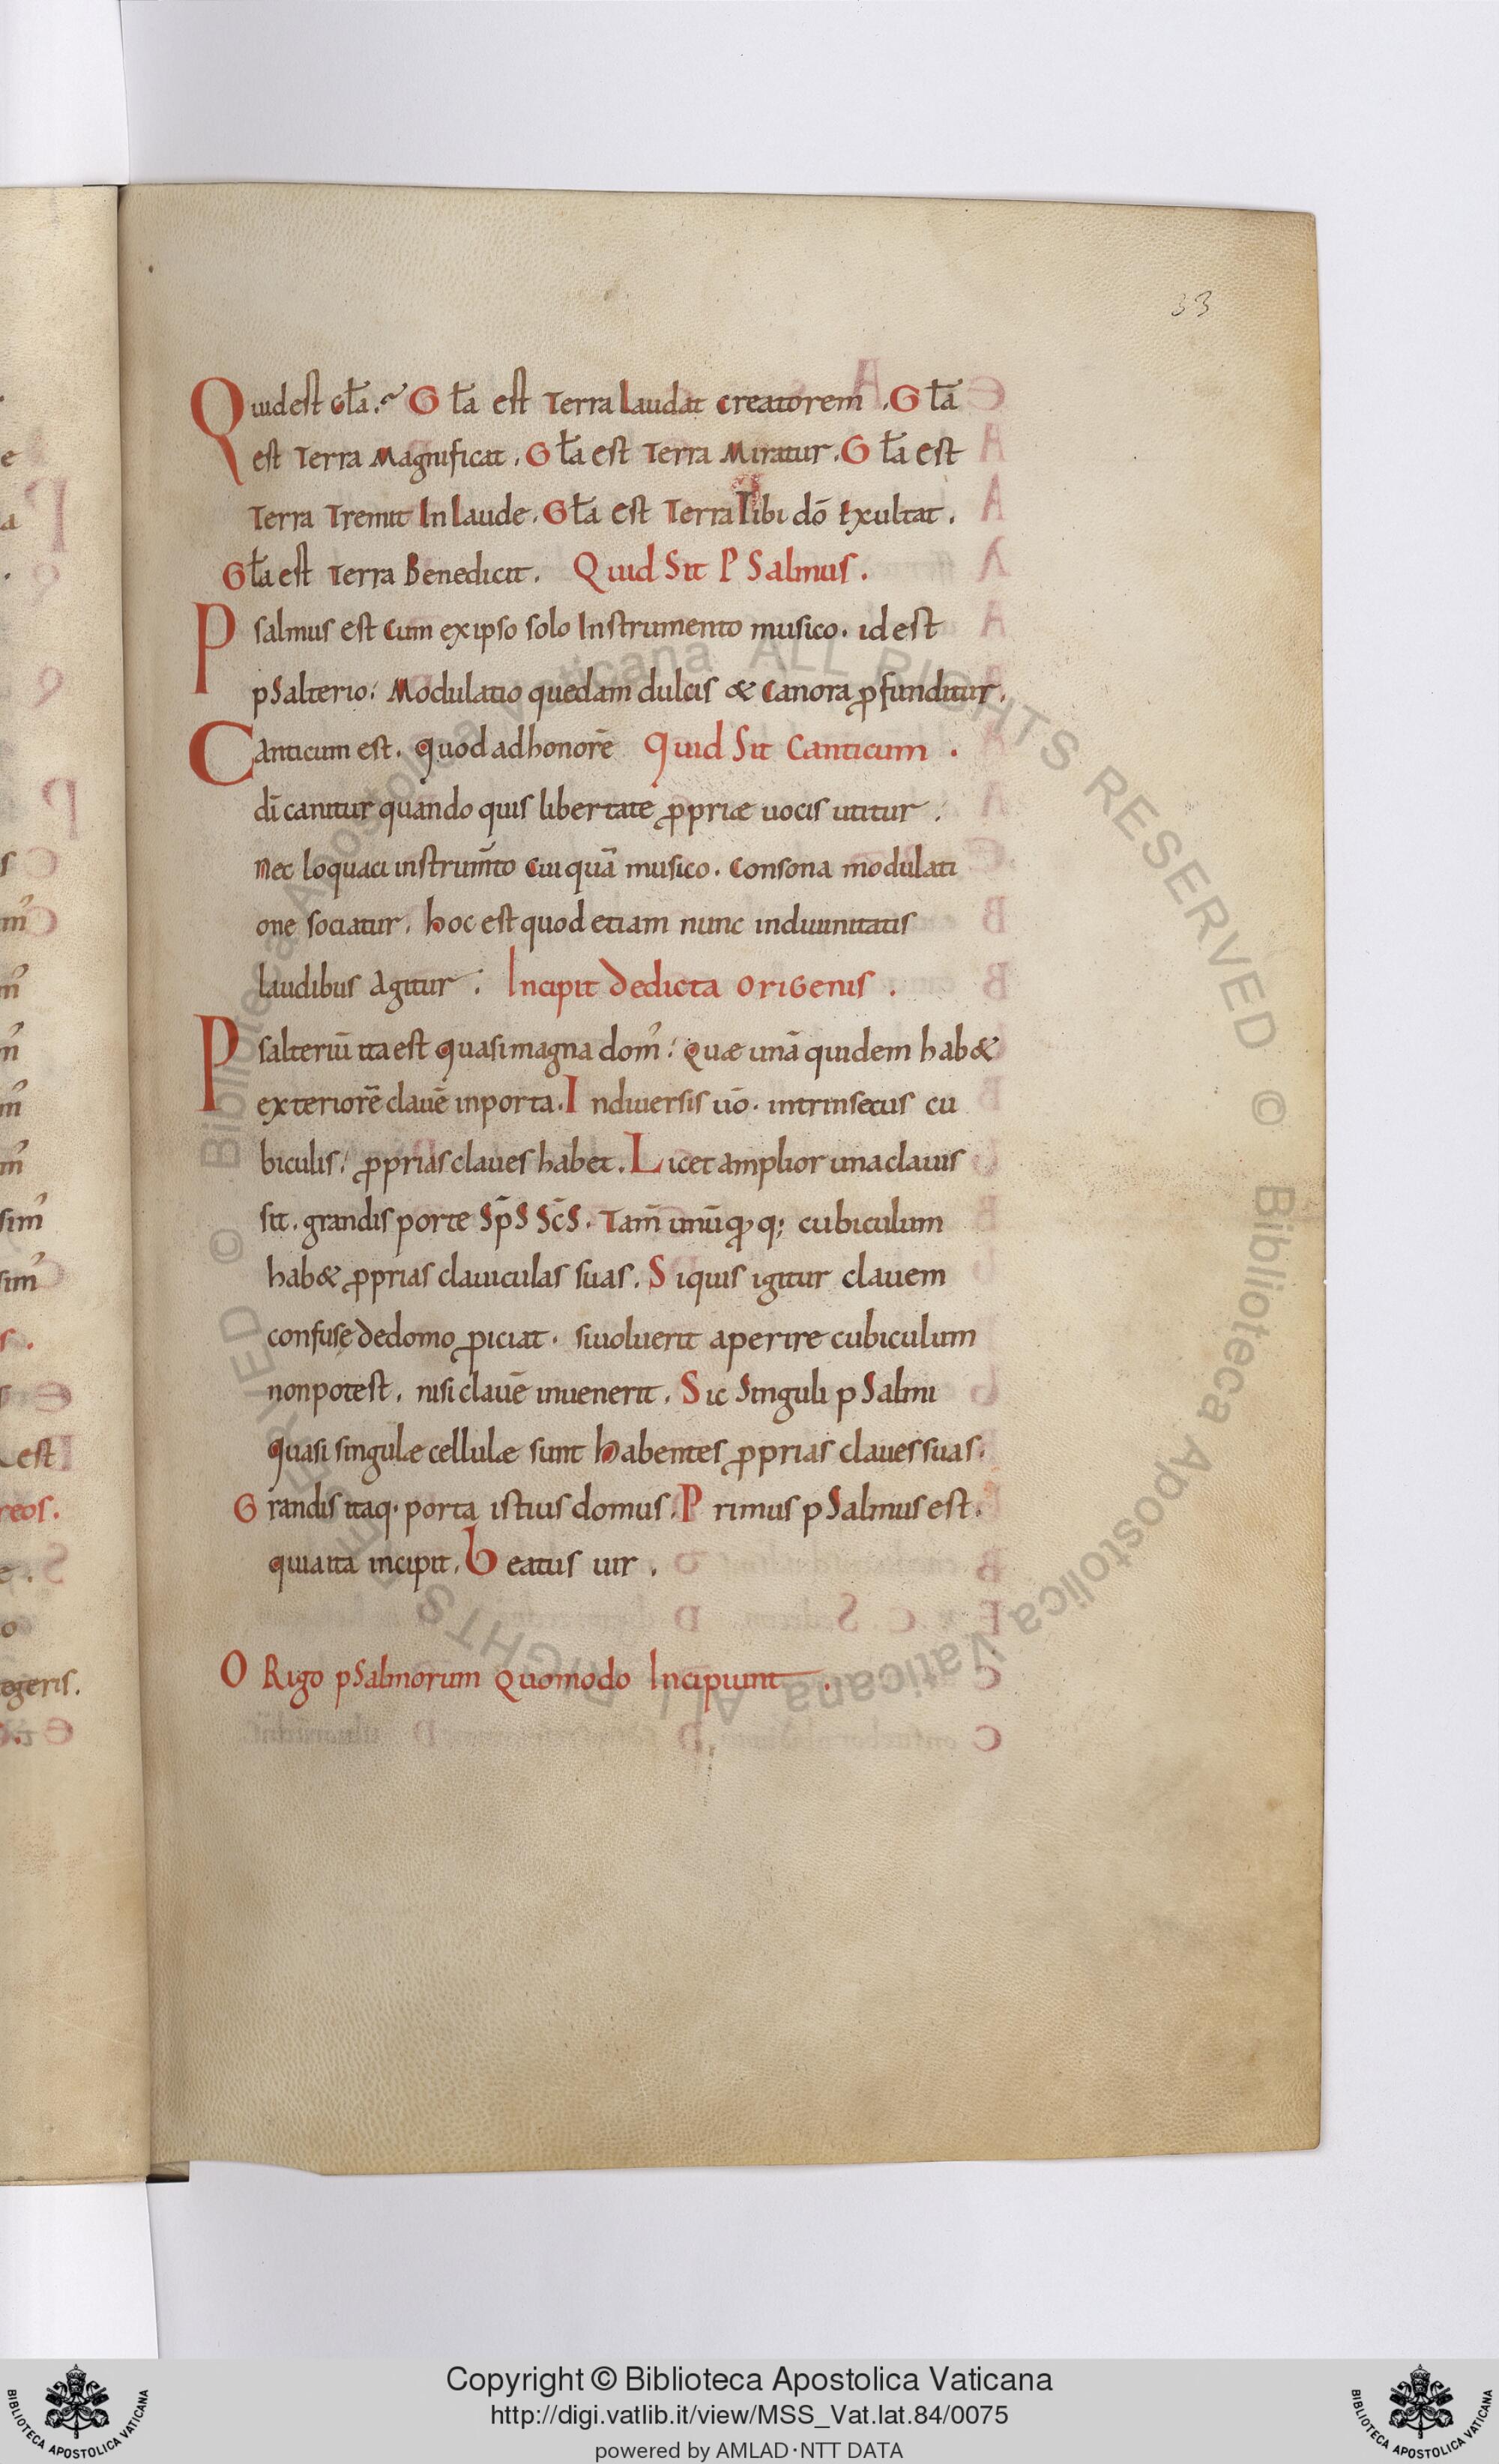 33
Quid est gła. G ła est Terra Laudat creatorem . G ła
est Terra Magnificat . G ła est Terra Miratur . G ła est
Terra Tremit In Laude . Gła est Terra Tibi dō Exultat .
Gła est Terra Benedicit . Quid Sit PSalmus .
Psalmus est cum ex ipso solo Instrumento musico . id est
pSalterio ; Modulatio quedam dulcis & canora ꝓfunditur .
Canticum est . quod ad honorē Quid Sit Canticum .
dī canitur quando quis libertate ꝓpriæ uocis utitur .
nec loquaci instrum̄to cuiquā musico . consona modulati
one sociatur . hoc est quod etiam nunc in diuinitatis
laudibus Agitur ; Incipit de dicta oriGenis .
Psalteriū ita est quasi magna dom' ; quæ unā quidem hab&
exteriorē clauē in porta . In diuersis uō . intrinsecus cu
biculis ; ꝓprias claues habet . Licet amplior una clauis
sit . grandis porte SpS ScS . Tam̄ unūq q; cubiculum
hab& ꝓprias clauiculas suas . Si quis igitur clauem
confusę de domo ꝓiciat . si uoluerit aperire cubiculum
non potest . nisi clauē inuenerit . Sic Singuli pSalmi
quasi singulæ cellulæ sunt habentes ꝓprias claues suas .
Grandis itaq. porta istius domus . Primus pSalmus est .
quia ita incipit . beatus uir .
ORigo pSalmorum quomodo Incipiunt .
e
a
s
m'
m'
m'
m'
m'
sim'
sim'
est
reos.
o
ogeris.
© Biblioteca Apostolica Vaticana ALL RIGHTS RESERVED © Biblioteca Apostolica Vaticana ALL RIGHTS RESERVED
Copyright © Biblioteca Apostolica Vaticana
http://digi.vatlib.it/view/MSS_Vat.lat.84/0075
powered by AMLAD·NTT DATA
BIBLIOTECA APOSTOLICA VATICANA
BIBLIOTECA APOSTOLICA VATICANA